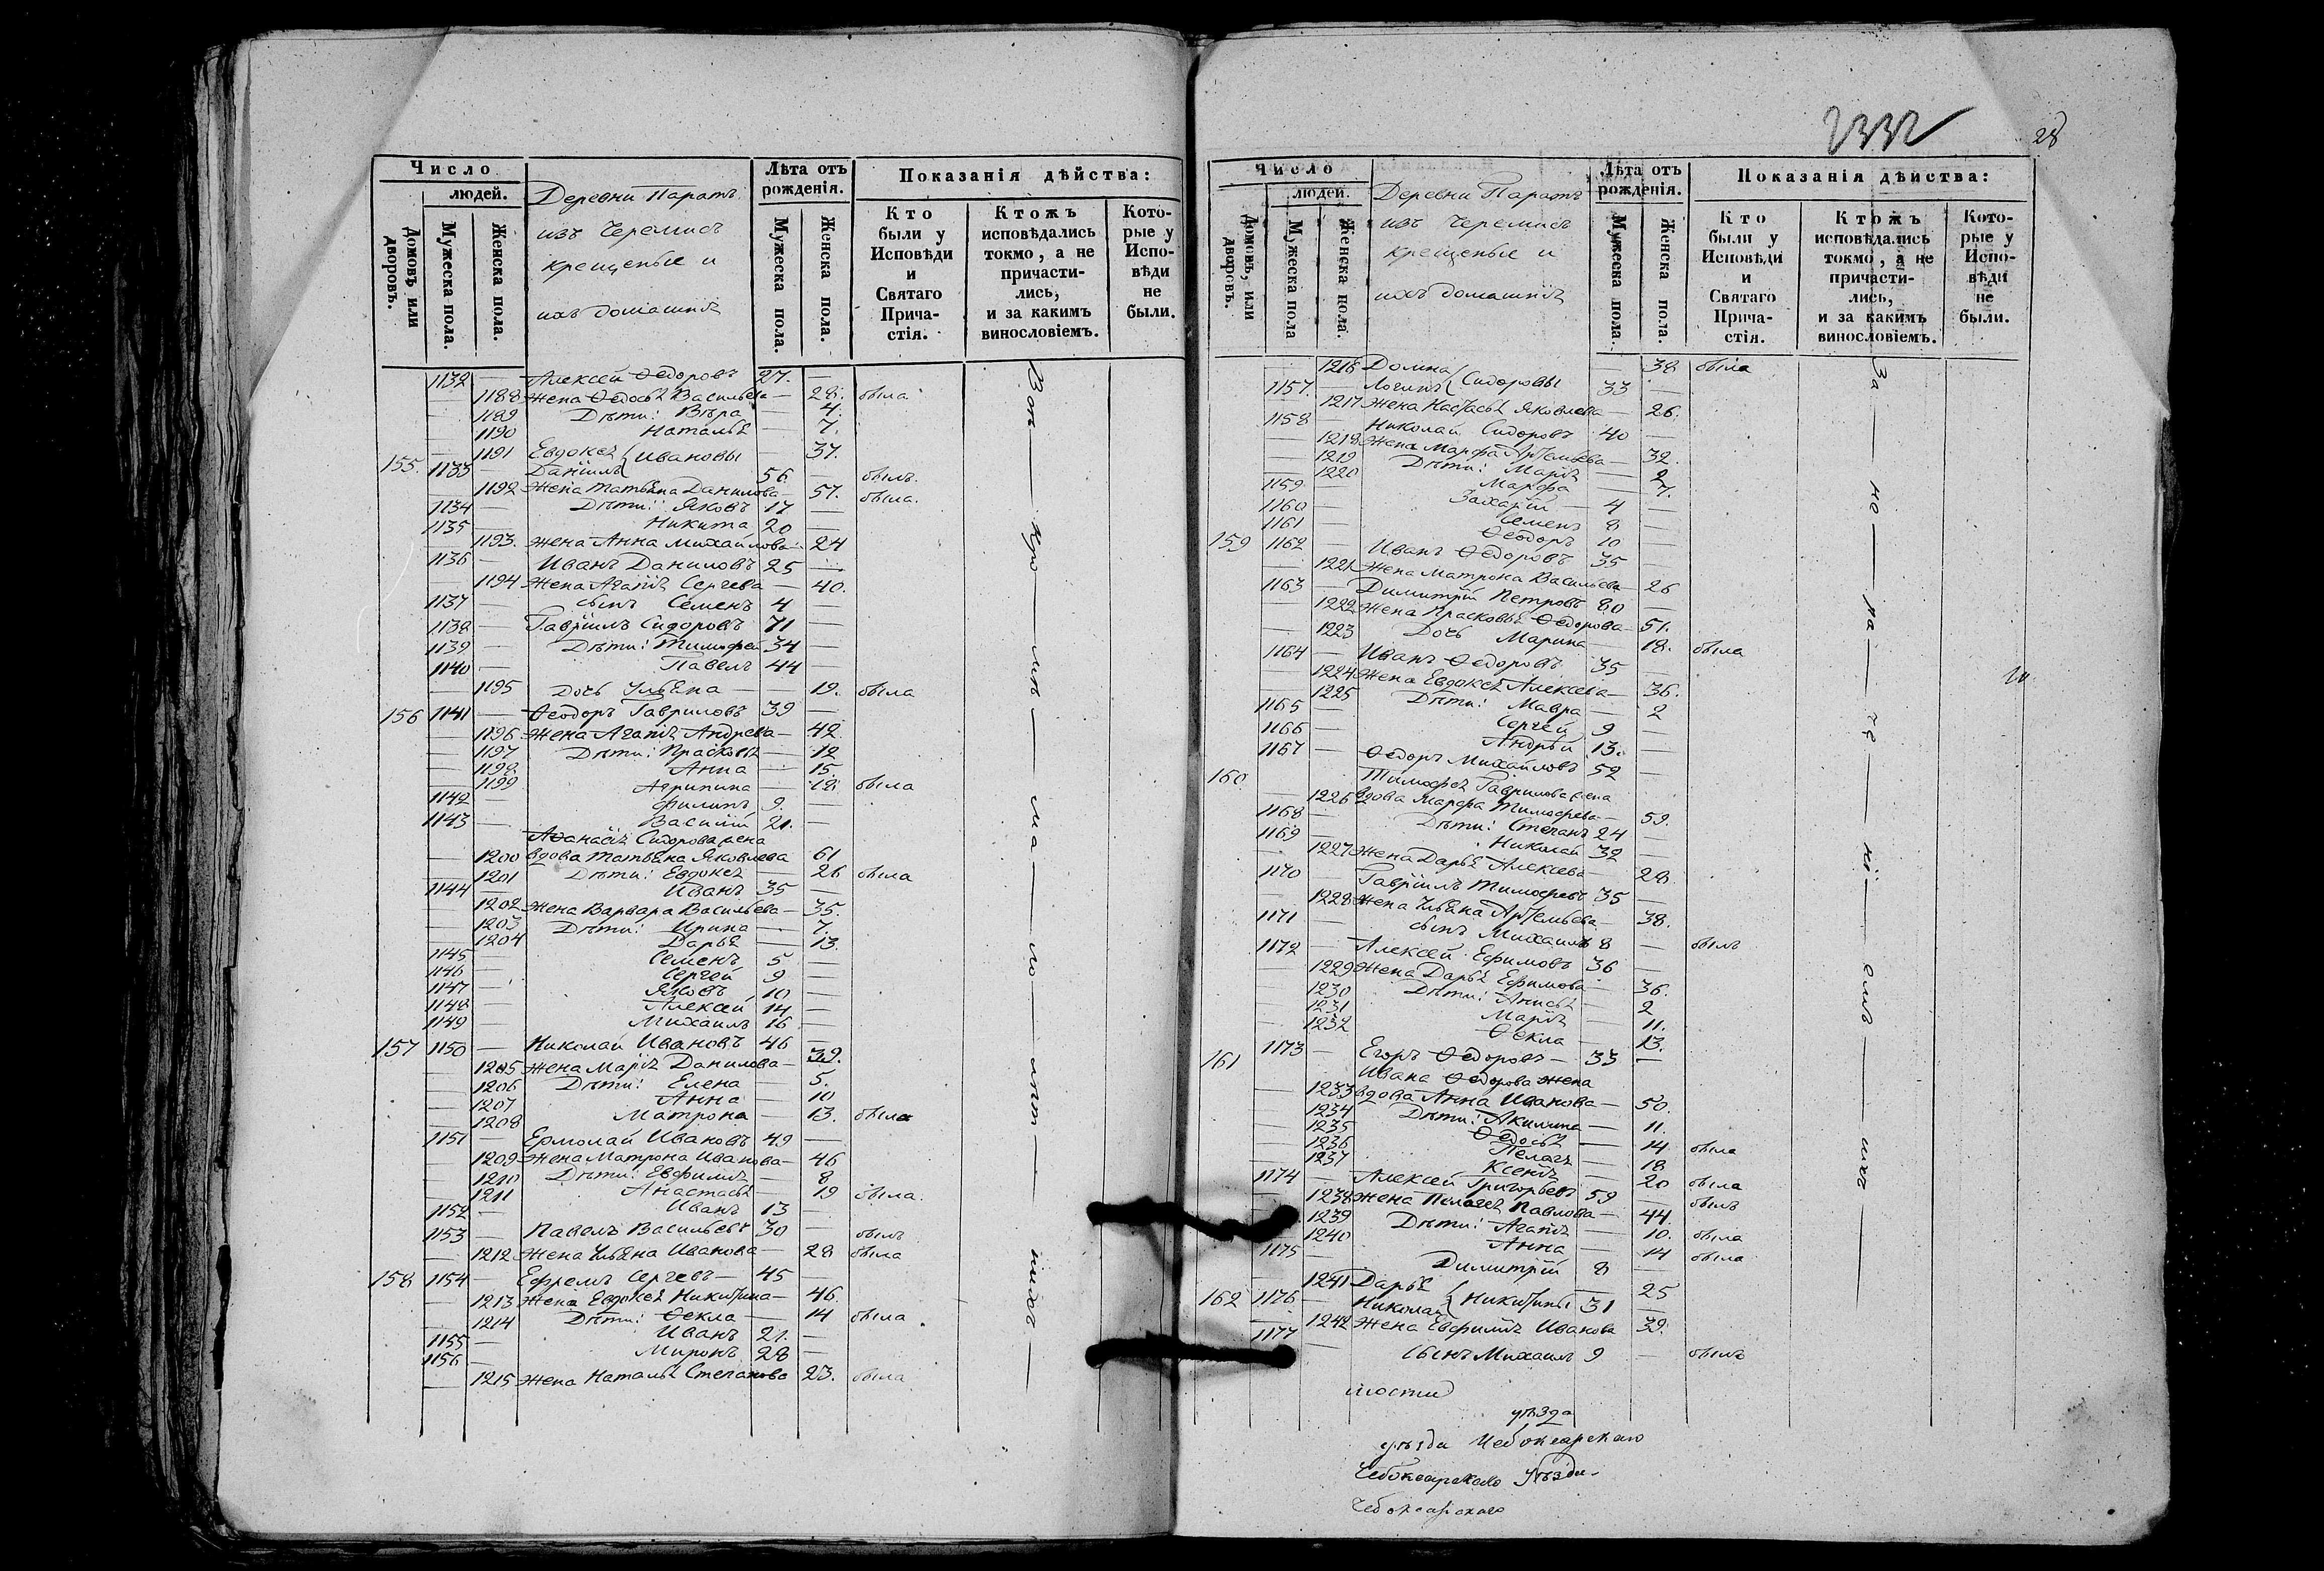 Число
людей.
Домовъ или дворовъ.
Мужеска пола.
Женска пола.
Деревни Паратъ
изъ Черемисъ
крещеные и
ихъ домашнiе
Лѣта отъ рожденiя.
Мужеска пола.
Женска пола.
Показанiя дѣйства:
Кто были у Исповѣди и Святаго Прича-стiя.
Ктожъ исповѣдались токмо, а не причасти-лись, и за какимъ винословiемъ.
Кото-рые у Испо-вѣди не были.
1132 — Алексей Ѳедоровъ 27. —
— 1188 Жена Ѳедосья Васильева — 28. была
— 1189 Дѣти: Вѣра — 4.
— 1190 Наталья — 7.
— 1191 Евдокея Ивановы — 37.
155. 1133 — Данiилъ 56 — былъ.
— 1192 Жена Татьяна Данилова — 57. была.
1134 — Дѣти: Яковъ 17 —
1135 — Никита 20 —
— 1193. Жена Анна Михайлова — 24
1136 — Иванъ Даниловъ 25 —
— 1194 Жена Агапiя Сергева — 40.
1137 — сынъ Семенъ 4 —
1138 — Гаврiилъ Сидоровъ 71 —
1139 — Дѣти: Тимофей 34 —
1140 — Павелъ 44 —
— 1195 Дочь Ульяна — 19. была
156 1141 — Ѳеодоръ Гавриловъ 39 —
— 1196 Жена Агапiя Андрева — 42.
— 1197 Дѣти: Прасковья — 12
— 1198 Анна — 15.
— 1199 Агрипина — 18 была
1142 — Филипъ 9. —
1143 — Василiй 21. —
Аѳанасiя Сидорова жена
— 1200 вдова Татьяна Яковлева 61
— 1201 Дѣти: Евдокея — 26 была
1144 — Иванъ 35 —
— 1202 Жена Варвара Васильева — 35.
— 1203 Дѣти: Ирина — 7.
— 1204 Дарья — 13.
1145 — Семенъ 5 —
1146 — Сергей 9 —
1147 — Яковъ 10 —
1148 — Алексей 14 —
1149 — Михаилъ 16 —
157 1150 — Николай Ивановъ 46 —
— 1205 Жена Марiя Данилова — 39.
— 1206 Дѣти: Елена — 5.
— 1207 Анна — 10
— 1208 Матрона — 13. была
1151 — Ермолай Ивановъ 49 —
— 1209 Жена Матрона Иванова — 46
— 1210 Дѣти: Евфимiя — 8
— 1211 Анастасья — 19 была.
1152 — Иванъ 13 —
1153 — Павелъ Васильевъ 30 — былъ
— 1212 Жена Ульяна Иванова — 28 была
158 1154 — Ефремъ Сергевъ — 45 —
— 1213 Жена Евдокея Никитина — 46.
— 1214 Дѣти: Ѳекла — 14 была
1155 — Иванъ 21. —
1156 — Миронъ 28 —
— 1215 Жена Наталья Степанова 23. была
28
Число
людей.
Домовъ, или дворовъ.
Мужеска пола
Женска пола.
Деревни Паратъ
изъ Черемисъ
крещеные и
ихъ домашнiе
Лѣта отъ рожденiя.
Мужеска пола.
Женска пола.
Показанiя дѣйства:
Кто были у Исповѣди и Святаго Прича-стiя.
Ктожъ исповѣдались токмо, а не причасти-лись, и за какимъ винословiемъ.
Кото-рые у Испо-вѣди не были.
1216 Домна — 38 была
1157. — Логинъ Сидоровы 33 —
— 1217 Жена Настасья Яковлева — 26.
1158 Николай Сидоровъ 40 —
— 1218 Жена Марфа Артемьева — 32.
— 1219 Дѣти: Марiя — 2
— 1220 Марфа — 7.
1159 Захарiй — 4 —
1160 — Семенъ 8 —
1161 — Ѳеодоръ 10 —
159 1162 — Иванъ Ѳедоровъ 35 —
— 1221 Жена Матрона Васильева — 26
1163 — Димитрiй Петровъ 80 —
— 1222 Жена Прасковья Ѳедорова — 51.
— 1223 Дочь Марина — 18. была
1164 — Иванъ Ѳедоровъ 35 —
— 1224 Жена Евдокея Алексева — 36.
— 1225 Дѣти: Мавра — 2
1165 — Сергей 9 —
1166 — Андрѣй 13. —
1167 — Ѳедоръ Михайловъ 52 —
160 Тимофея Гаврилова жена
— 1226 вдова Марфа Тимофева — 59.
1168 — Дѣти: Степанъ 24 —
1169 — Николай 32 —
— 1227 Жена Дарья Алексева 28
1170 — Гаврiилъ Тимофевъ 35 —
— 1228 Жена Ульяна Артемьева — 38.
1171 — сынъ Михаилъ 8 — былъ
1172 — Алексей Ефимовъ 36 —
— 1229 Жена Дарья Ефимова 36.
— 1230 Дѣти: Анисья — 2
— 1231 Марiя — 11.
— 1232 Ѳекла — 13.
161 1173 — Егоръ Ѳедоровъ — 33 —
Ивана Ѳедорова жена
— 1233 вдова Анна Иванова — 50.
— 1234 Дѣти: Акилина — 11.
— 1235 Ѳедосья — 14 была
— 1236 Пелагея — 18
— 1237 Ксенiя — 20 была
1174 — Алексей Григорьевъ 59 — былъ
— 1238 Жена Пелагея Павлова — 44.
— 1239 Дѣти: Агапiя — 10. была
— 1240 Анна — 14 была
1175 — Димитрiй 8 —
— 1241 Дарья — 25
162 1176 — Николай Никитины 31 —
— 1242 Жена Евфимiя Иванова 39.
1177 — Сынъ Михаилъ 9 — былъ
уѣзда
уѣзда Чебоксарскаго
Чебоксарскаго уѣзда
Чебоксарскаго